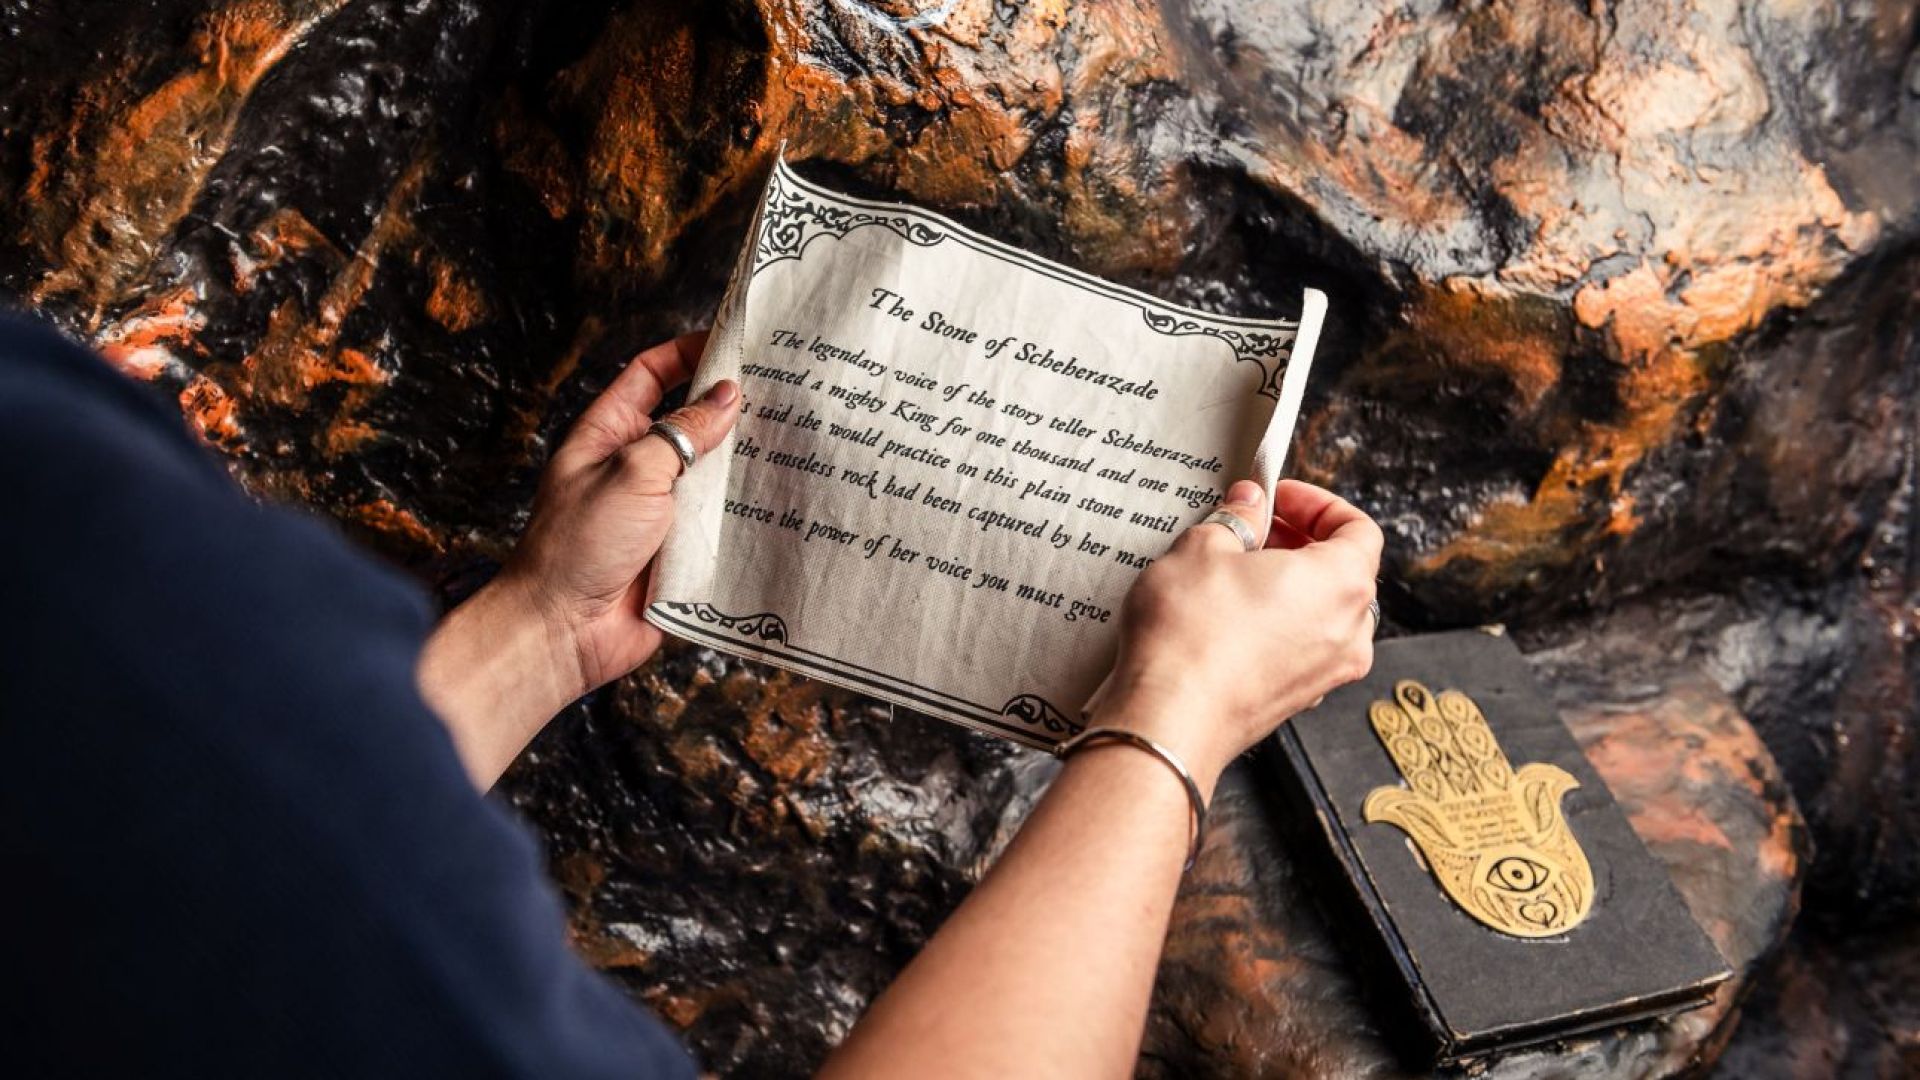 The Stone of Scheherazade
The legendary voice of the story teller Scheherazade
ntranced a mighty King for one thousand and one night
s said she would practice on this plain stone until
the senseless rock had been captured by her ma
eceive the power of her voice you must give